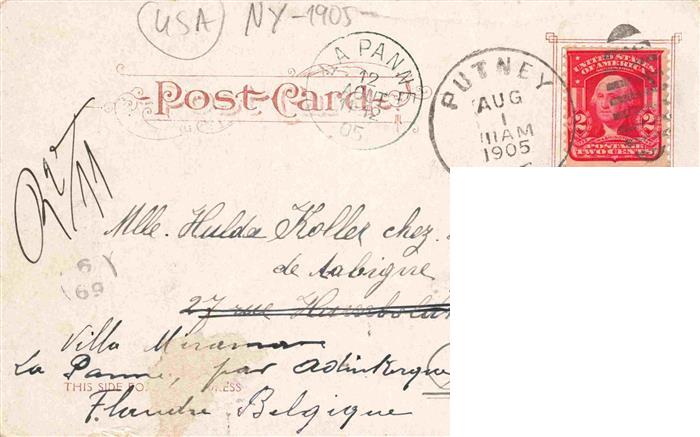 (USA) NY-1905-
LA PANNE
12
AOUT
12
05
Post Card
PUTNEY
AUG
1
11 AM
1905
UNITED STATES
OF AMERICA
2 2
POSTAGE
TWO CENTS
Mlle. Hulda Koller chez
de Labigne
27 rue
Villa Miramar
La Panne, par Adinkerque
THIS SIDE FO ESS
Flandre Belgique
69